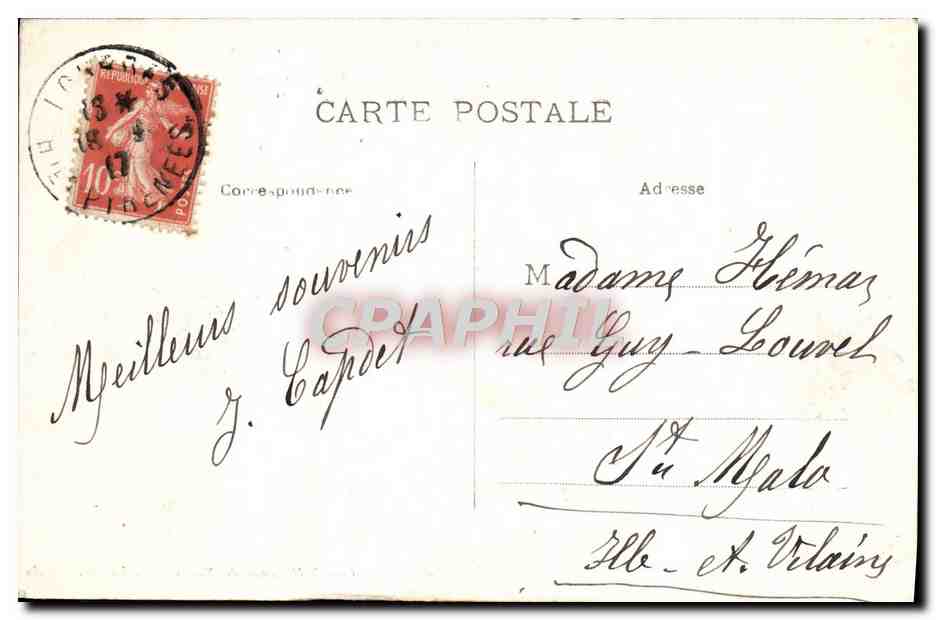 CARTE POSTALE
Correspondance
Adresse
RÉPUBLIQUE
10
POSTES
13 *
18
17
PYRENÉES
Meilleurs souvenirs
J. Capdet
Madame Hémar
rue Guy-Louvel
St Malo
Ille-et-Vilaine
CPAPHIL